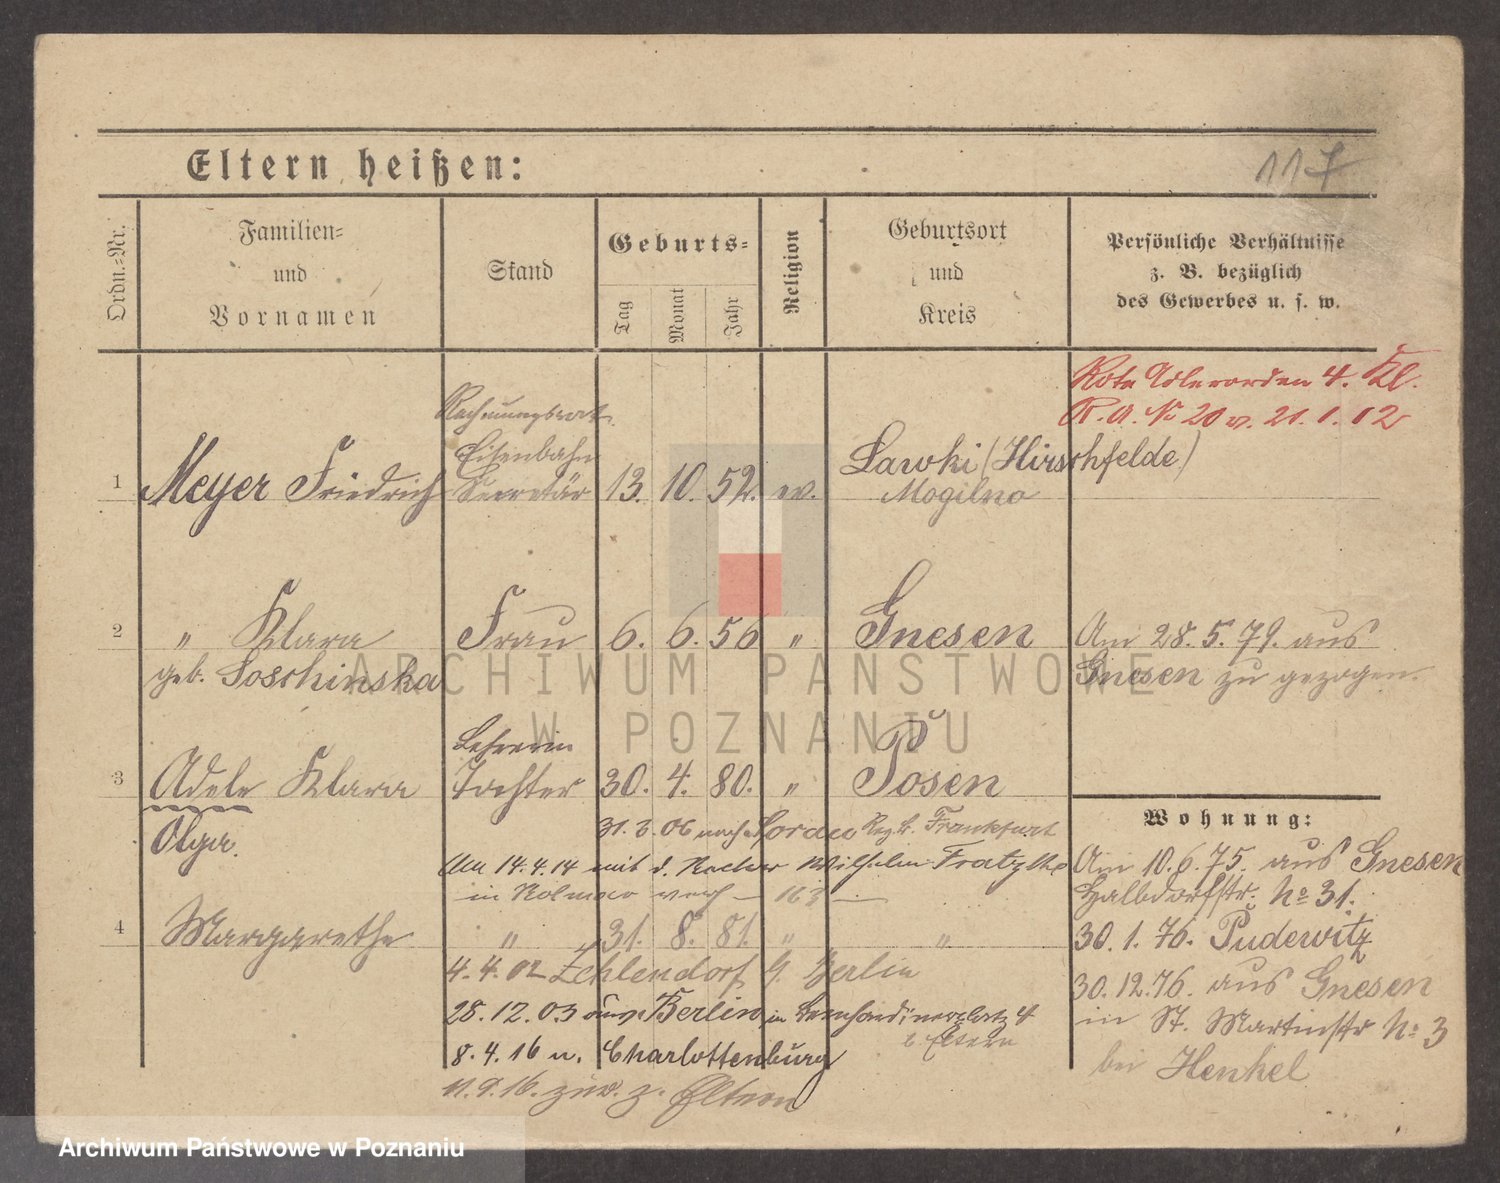 117
Eltern heißen:
Ordn.-Nr.
Familien-
und
Vornamen
Stand
Geburts-
Tag
Monat
Jahr
Religion
Geburtsort
und
Kreis
Persönliche Verhältnisse
z. B. bezüglich
des Gewerbes u. s. w.
Rote Adlerorden 4. Kl.
R. A. No 20 v. 21.1.12
Rechnungsrat
Eisenbahn
1 Meyer Friedrich Secretär 13. 10. 52. ev. Lawki (Hirschfelde)
Mogilno
2 " Klara Frau 6. 6. 56 " Gnesen Am 28.5.79. aus
geb. Soschinska Gnesen zu gezogen.
Lehrerin
3 Adele Klara Tochter 30. 4. 80. " Posen
Olga.
31.3.06 nach Frankfurt
Am 14.4.14 mit d. Wilhelm
in Kolmar
4 Margarethe " 31. 8. 81. " "
4.4.02 Zehlendorf b. Berlin
28.12.03 Berlin in Bernhardinerplatz 4
b. Eltern
8.4.16 n. Charlottenburg
11.9.16. zur. z. Eltern
Wohnung:
Am 10.6.75. aus Gnesen
Halbdorfstr. No 31.
30.1.76. Pudewitz
30.12.76. aus Gnesen
in St. Martinstr No 3
bei Henkel
ARCHIWUM PAŃSTWOWE
W POZNANIU
Archiwum Państwowe w Poznaniu